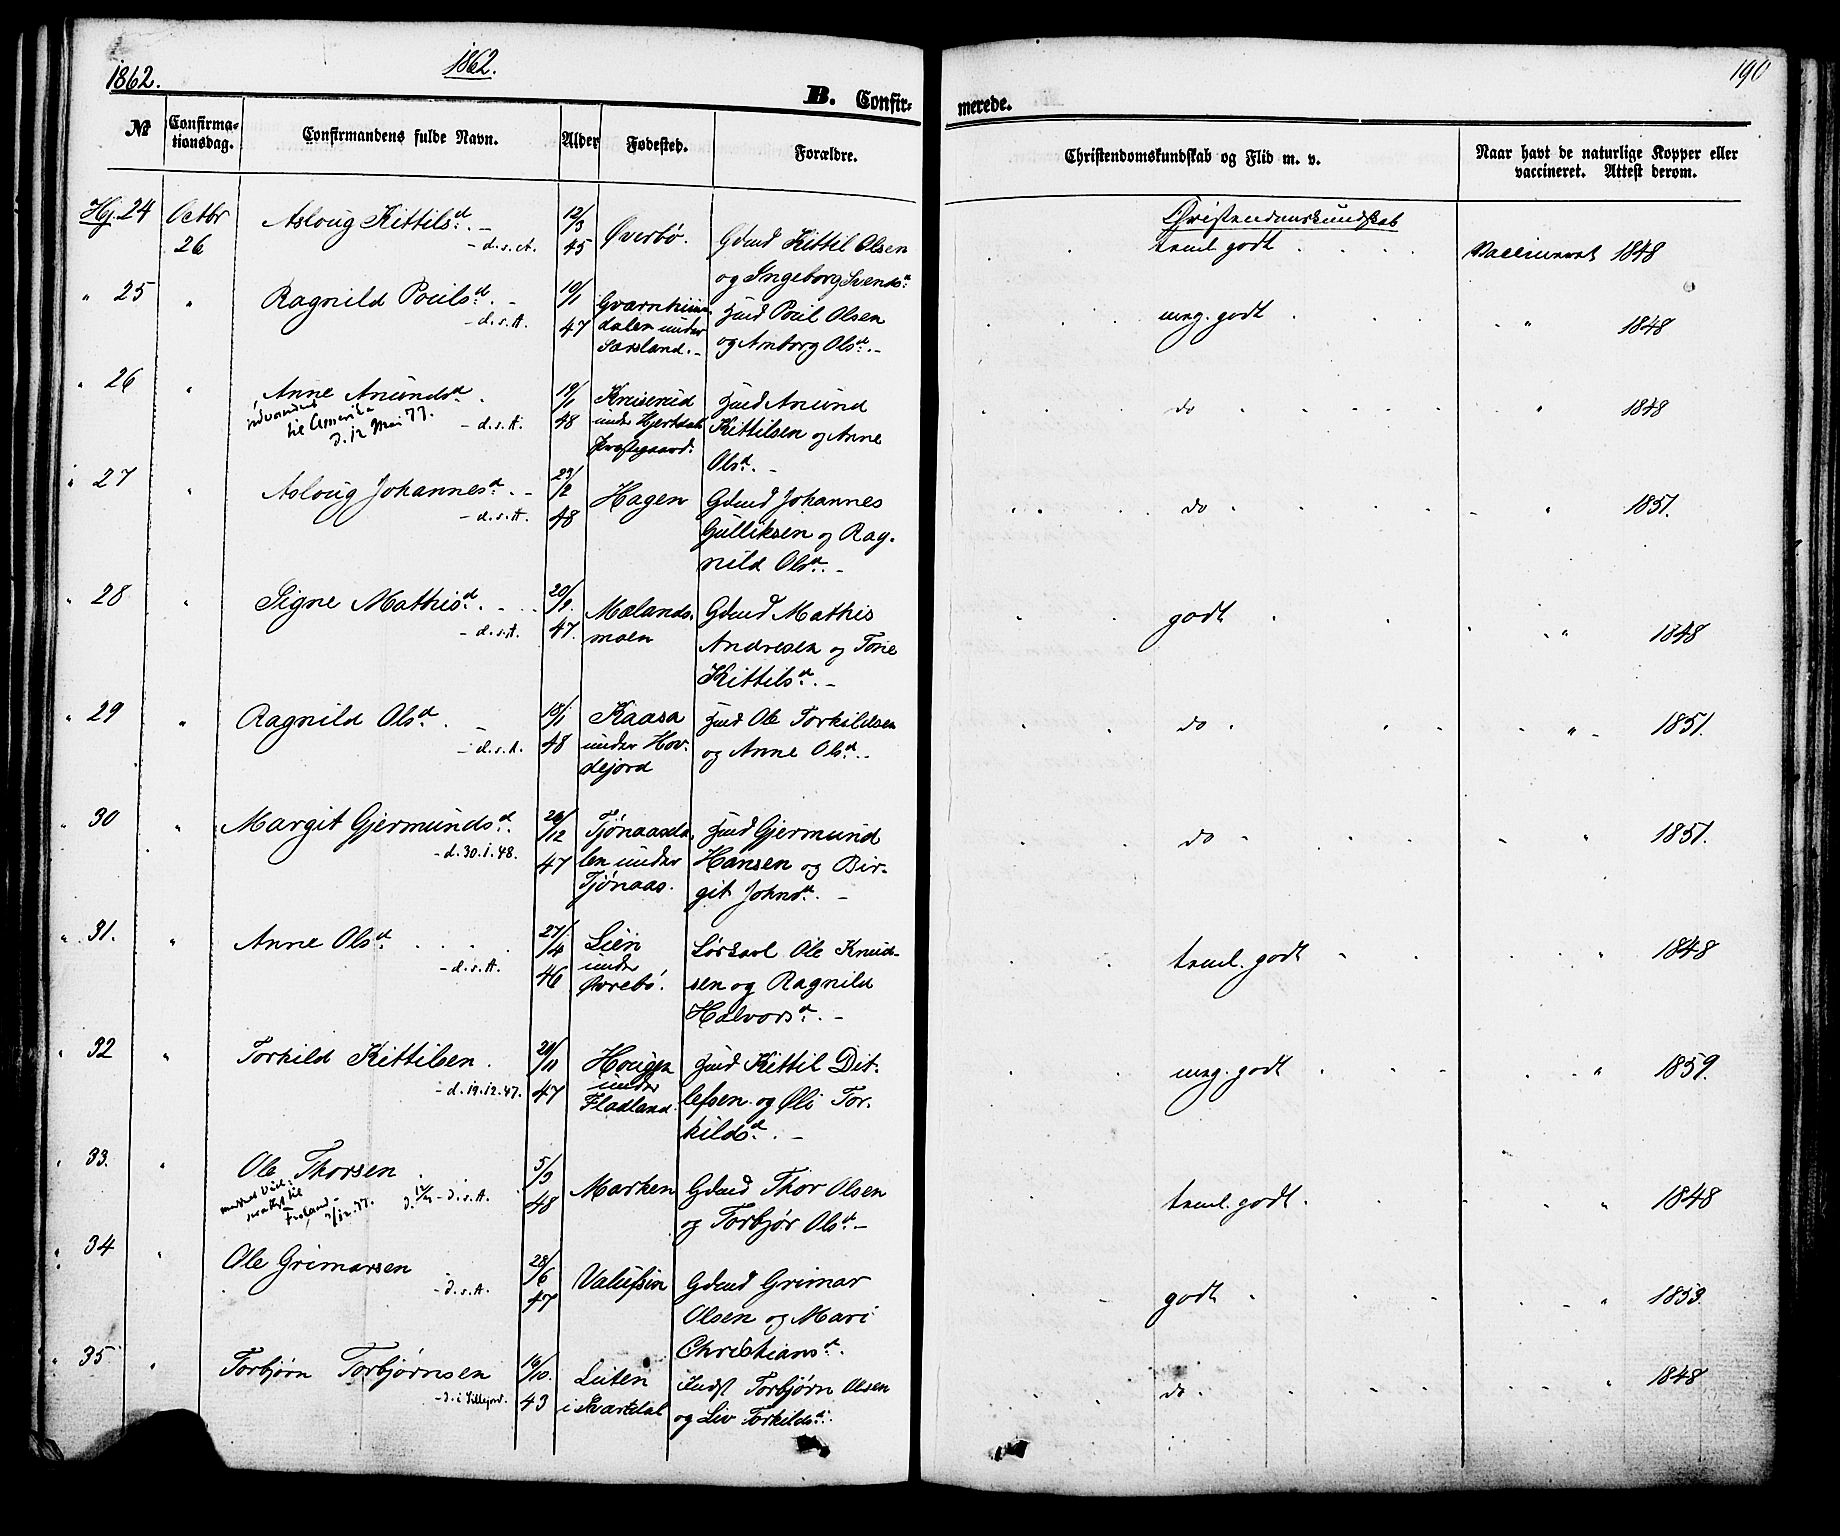 1862.
1862.
190
B. Confir-
merede.
№
Confirma-
tionsdag.
Confirmandens fulde Navn.
Alder
Fødested.
Forældre.
Christendomskundskab og Flid m. v.
Naar havt de naturlige Kopper eller
vaccineret. Attest derom.
Christendomskundskab
Hj. 24 Octbr 26 Asloug Kittilsd. - d. s. A. 12/3 45 Øverbø. Gdmd Kittil Olsen
og Ingeborg Svendsd. teml. godt Vaccineret 1848
" 25 " Ragnild Poulsd. - d. s. A. 10/1 47
dalen under
Sarsland. -
Huusmd Poul Olsen
og Anborg Olsd. -
meg. godt " 1848
" 26 " Anne Anundsd. - d. s. A.
udvandret
til Amerika
d. 12 Mai 77.
19/1 48
under Hjertdals
Præstegaard.
Anund
Kittilsen og Anne
Olsd. -
do " 1848
" 27 " Asloug Johannesd. - d. s. A. 29/2 48 Hagen Gdmd Johannes
Gulliksen og Rag-
nild Olsd. -
do " 1851.
" 28 " Signe Mathisd. - d. s. A. 20/9. 47. Mælands-
moen
Gdmd Mathis
Andresen og Tone
Kittilsd. -
godt " 1848
" 29 " Ragnild Olsd. - d. s. A. 13/1 48 Kaasa
under Hov-
dejord
Ole Torkildsen
og Anne Olsd. -
do " 1851.
" 30 " Margit Gjermundsd. - d. 30.1.48. 26/12 47 Tjønaasda-
len under
Tjønaas.
Gjermund
Hansen og Bir-
git Johnsd. -
do " 1851.
" 31. " Anne Olsd. - d. s. A. 27/4 46 Lien
under
Øvrebø.
Ole Knud-
sen og Ragnild
Halvorsd. -
teml. godt " 1848
" 32 " Torkild Kittilsen. - d. 19.12.47. 20/11 47 Hougen
under
Fladland.
Kittil Dit-
lefsen og Øli Tor-
kildsd. -
meg. godt " 1859.
" 33. " Ole Thorsen - d. s. A. 5/3 48 Marken Gdmd Thor Olsen
og Torbjør Olsd. -
teml. godt. " 1848
" 34 " Ole Grimarsen - d. s. A. 28/6 47 Gdmd Grimar
Olsen og Mari
Christiansd.
godt " 1853.
" 35 " Torbjørn Torbjørnsen - d. i Sillejord. 16/10. 43
i Svartdal
Inds Torbjørn Olsen
og Liv Torkildsd.
do. " 1848